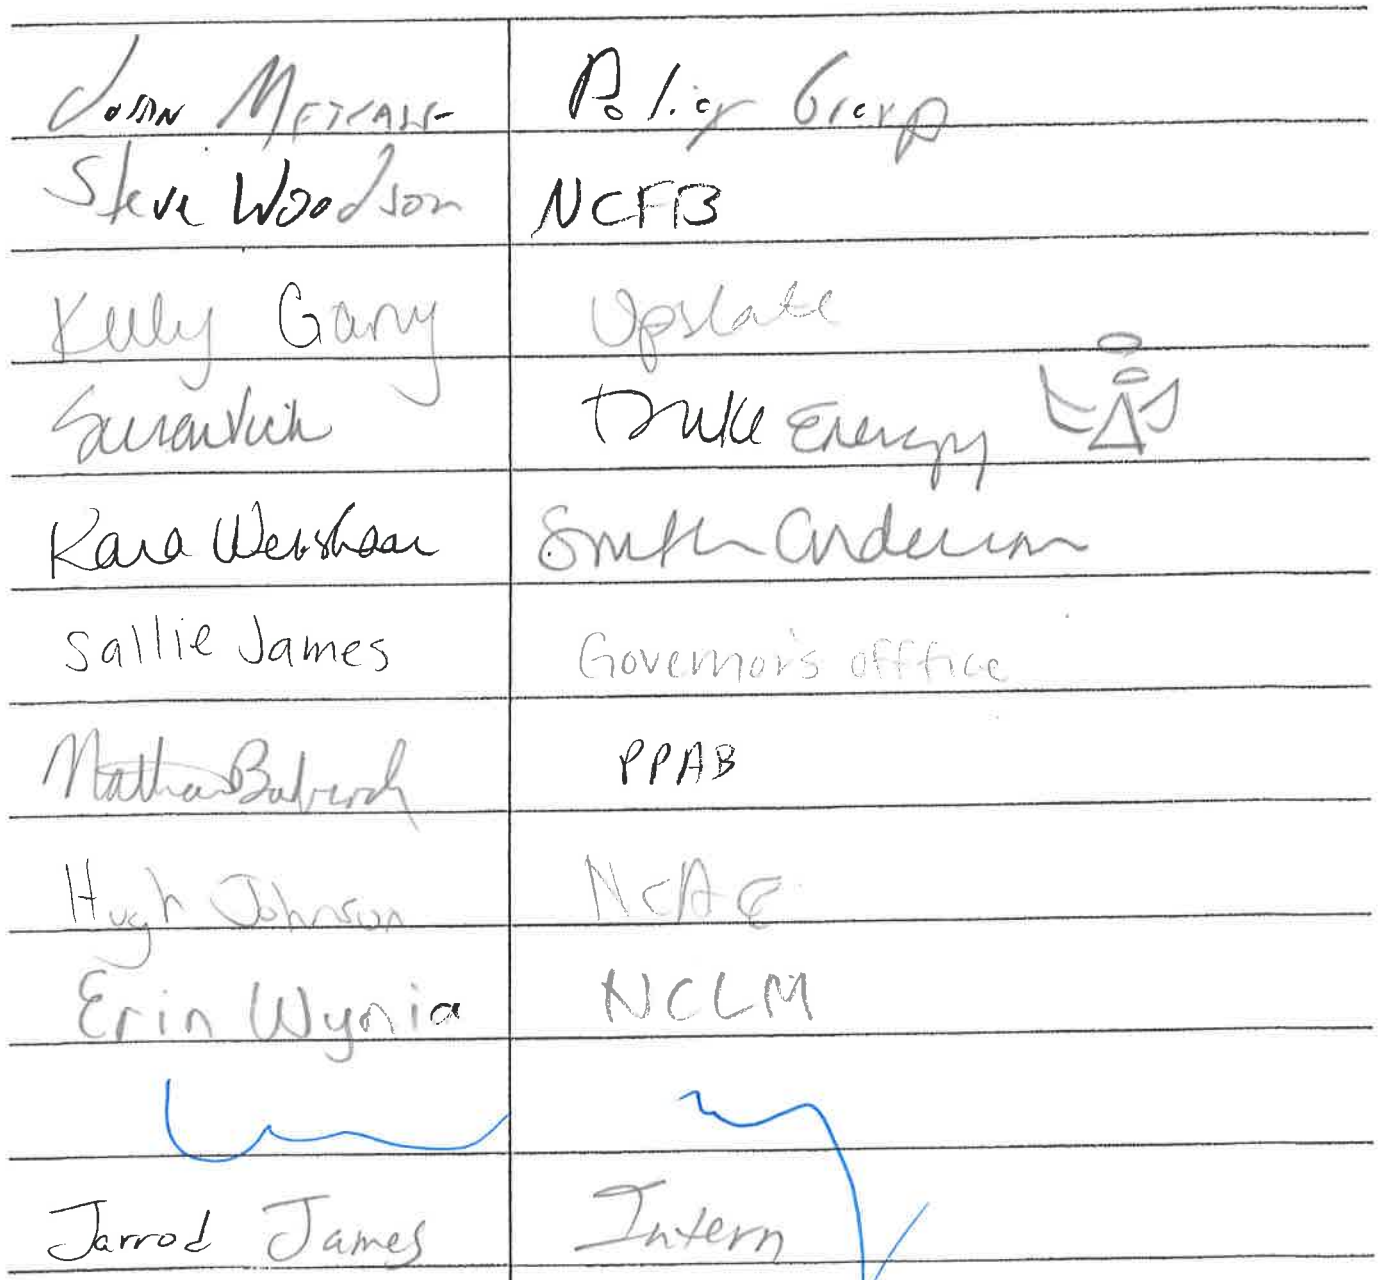 John Metcalf Policy Group
Steve Woodson NCFB
Kelly Gary Upstate
Susan Vick Duke Energy
Kara Weishaar Smith Anderson
Sallie James Governor's offfice
Nathan Babcock PPAB
Hugh Johnson NCAE
Erin Wynia NCLM
Jarrod James Intern